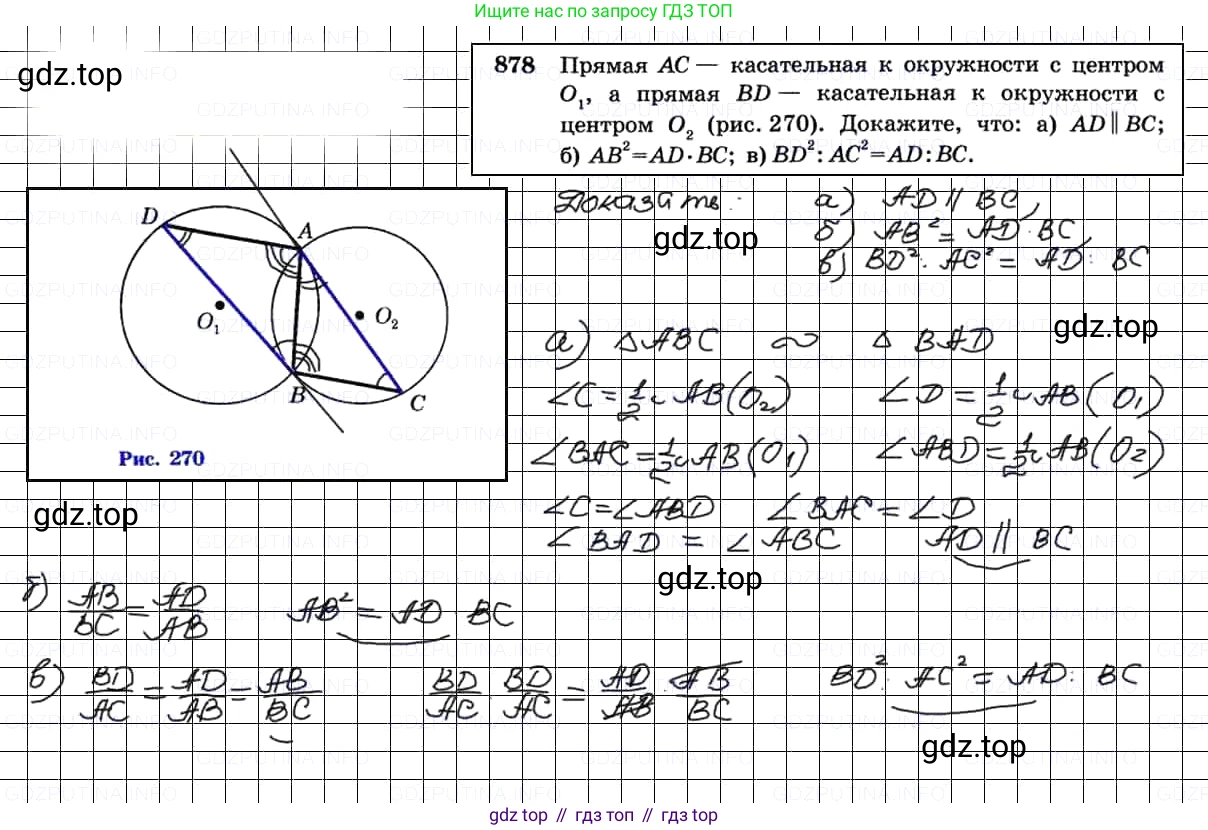 Ищите нас по запросу ГДЗ ТОП
gdz.top
878 Прямая AC — касательная к окружности с центром
O₁, а прямая BD — касательная к окружности с
центром O₂ (рис. 270). Докажите, что: а) AD ∥ BC;
б) AB²=AD·BC; в) BD² : AC²=AD : BC.
Доказать: а) AD ∥ BC,
б) AB² = AD · BC,
в) BD² : AC² = AD : BC
gdz.top
D
A
O₁
O₂
B
C
Рис. 270
gdz.top
а) △ABC ∾ △ BAD
∠C = 1/2 ◡ AB (O₂) ∠D = 1/2 ◡ AB (O₁)
∠BAC = 1/2 ◡ AB (O₁) ∠ABD = 1/2 ◡ AB (O₂)
gdz.top
∠C = ∠ABD ∠BAC = ∠D
∠BAD = ∠ABC AD ∥ BC
gdz.top
б) AB/BC = AD/AB AB² = AD · BC
в) BD/AC = AD/AB = AB/BC BD/AC · BD/AC = AD/AB · AB/BC BD² : AC² = AD : BC
gdz.top
gdz top // гдз топ // гдз top
GDZPUTINA.INFO